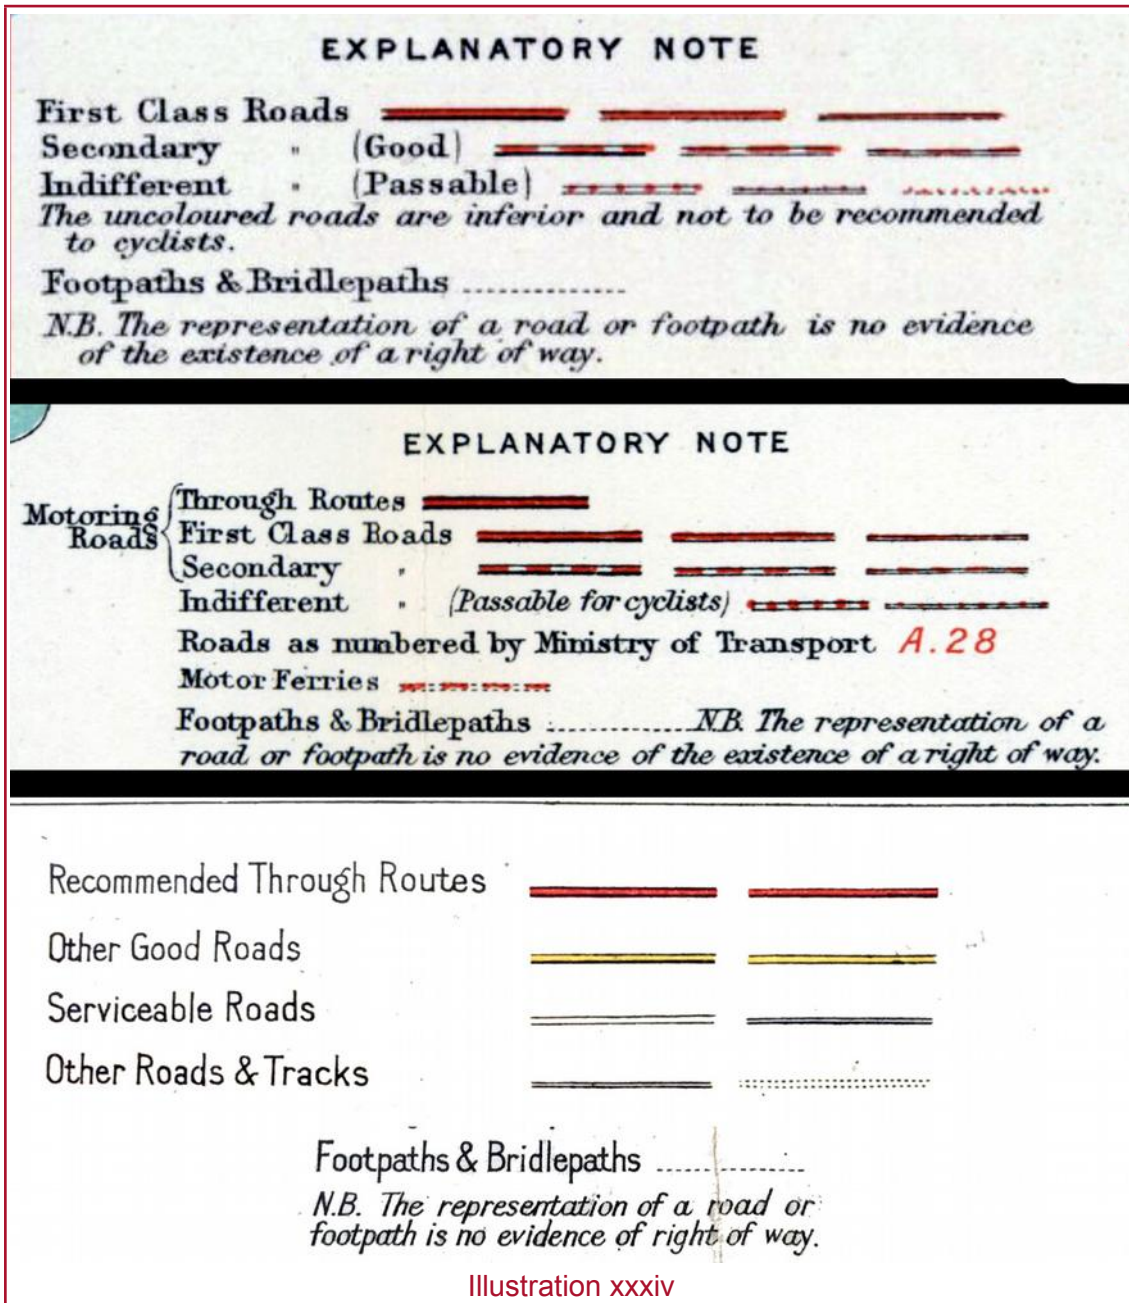 EXPLANATORY NOTE
First Class Roads
Secondary " (Good)
Indifferent " (Passable)
The uncoloured roads are inferior and not to be recommended
to cyclists.
Footpaths & Bridlepaths
N.B. The representation of a road or footpath is no evidence
of the existence of a right of way.
EXPLANATORY NOTE
Motoring
Roads
Through Routes
First Class Roads
Secondary "
Indifferent " (Passable for cyclists)
Roads as numbered by Ministry of Transport A.28
Motor Ferries
Footpaths & Bridlepaths N.B. The representation of a
road or footpath is no evidence of the existence of a right of way.
Recommended Through Routes
Other Good Roads
Serviceable Roads
Other Roads & Tracks
Footpaths & Bridlepaths
N.B. The representation of a road or
footpath is no evidence of right of way.
Illustration xxxiv